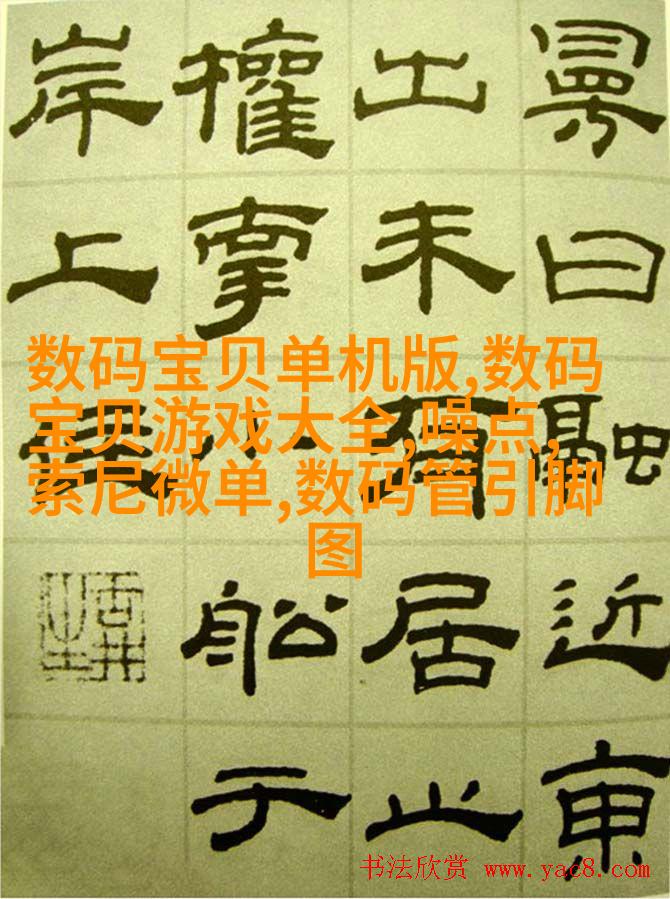 曰融近東
出未有居止
權小舩于
岸上
数码宝贝单机版,数码
宝贝游戏大全,噪点,
索尼微单,数码管引脚
图
书法欣赏 www.yac8.com